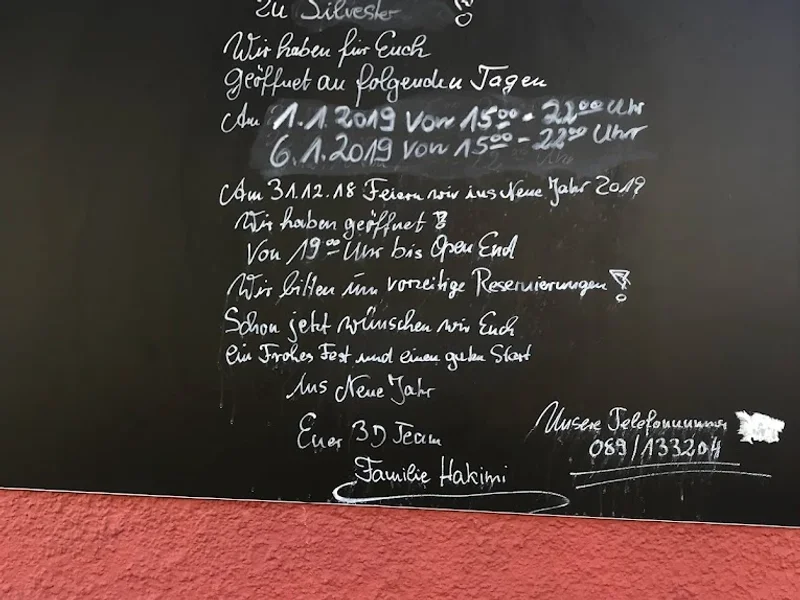 zu Silvester !
Wir haben für Euch
geöffnet an folgenden Tagen
Am 1.1.2019 von 15⁰⁰ - 22⁰⁰ Uhr
6.1.2019 von 15⁰⁰ - 22⁰⁰ Uhr
Am 31.12.18 Feiern wir ins Neue Jahr 2019
Wir haben geöffnet !
Von 19⁰⁰ Uhr bis Open End
Wir bitten um vorzeitige Reservierungen !
Schon jetzt wünschen wir Euch
ein Frohes Fest und einen guten Start
Ins Neue Jahr
Euer 3D Team
Familie Hakimi
Unsere Telefonnummer
089/133204